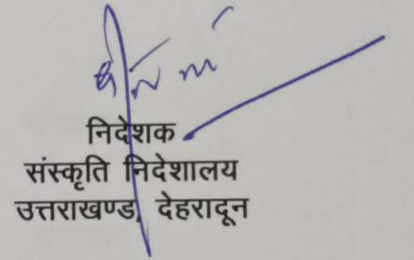 निदेशक
संस्कृति निदेशालय
उत्तराखण्ड, देहरादून